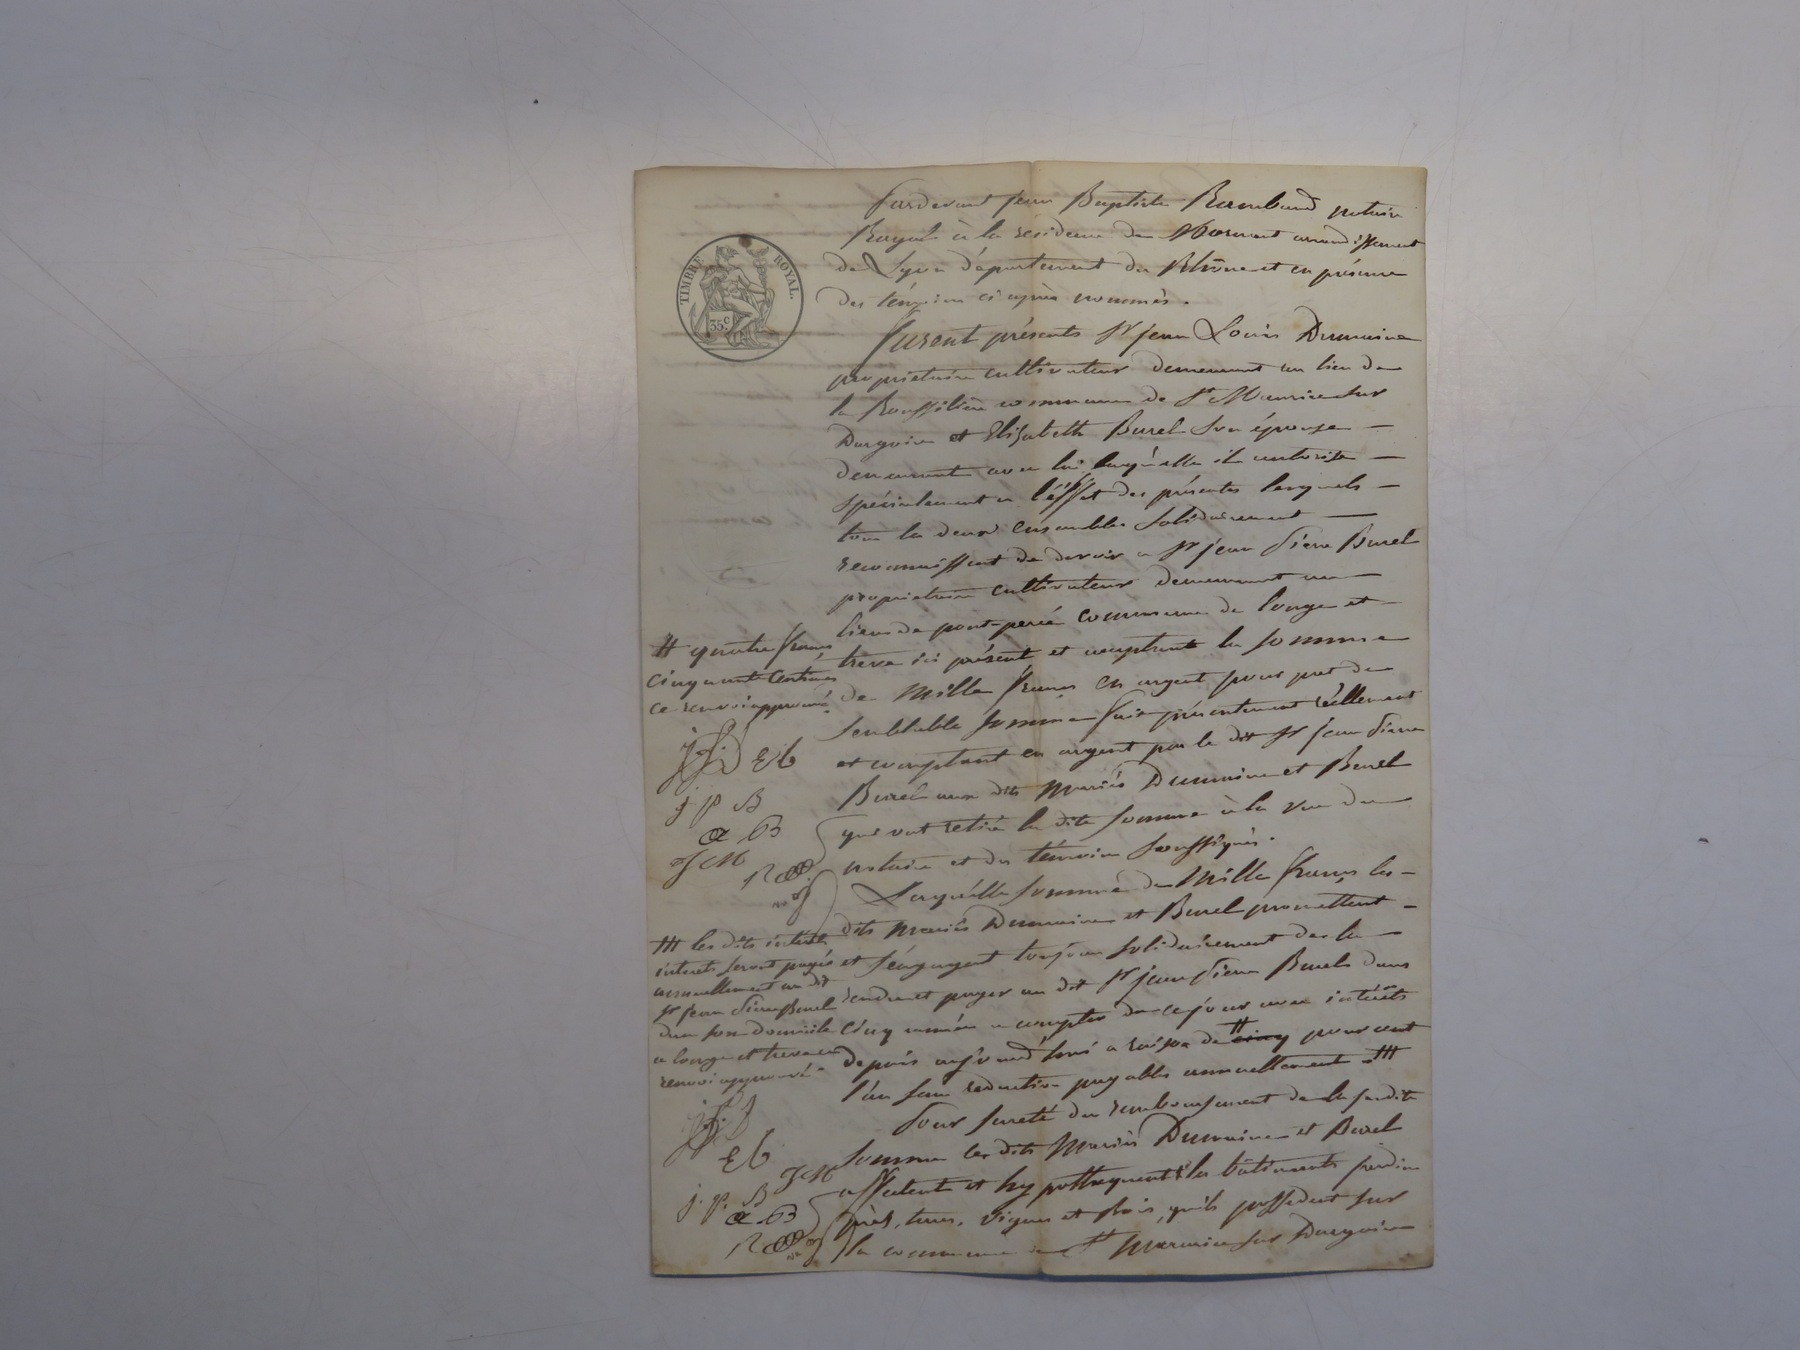 TIMBRE ROYAL.
35 c
Pardevant jean Baptiste Rambaud notaire
Royal à la residence de Mornant arrondissement
de Lyon département du Rhône et en présence
des témoins ci après nommés.
Furent présents Sr jean Louis Dumaine
propriétaire cultivateur demeurant au lieu de
la Roussilière commune de St Maurice sur
Dargoire et Elisabeth Burel son épouse
demeurant avec lui laquelle il autorise
spécialement a l'éffet des présentes lesquels
tous les deux ensembles solidairement
reconnaissent de devoir a Sr jean Pierre Burel
propriétaire cultivateur demeurant au
lieu de pont-percé commune de longe et
treve ici présent et acceptant la somme
de Mille francs en argent pour pret de
semblable somme fait présentement réellement
et comptant en argent par le dit Sr jean Pierre
Burel aux dits Mariés Dumaine et Burel
qui ont retiré la dite somme à la vue du
notaire et des témoins soussignés.
Laquelle somme de Mille francs les
dits Mariés Dumaine et Burel promettent
et s'éngagent toujours solidairement de la
rendre et payer au dit Sr jean Pierre Burel dans
cinq années a compter de ce jour avec intérêts
depuis aujourd'hui a raison de # cinq pour cent
l'an sans reduction payables annuellement #
Pour sureté du remboursement de la susdite
somme les dits Mariés Dumaine et Burel
affectent et hypothequent les bâtiments jardin
près, terres, vignes et bois, qu'ils possedent sur
la commune de St Maurice sur Dargoire
# quatre francs
cinquante centimes
ce renvoi approuvé.
E b
j P B
a B
J M
# les dits intérêts
interets seront payés
annuellement au dit
Sr jean Pierre Burel
dans son domicile
a longe et treve ce
renvoi approuvé.
E b
J M
j. P. B
a B